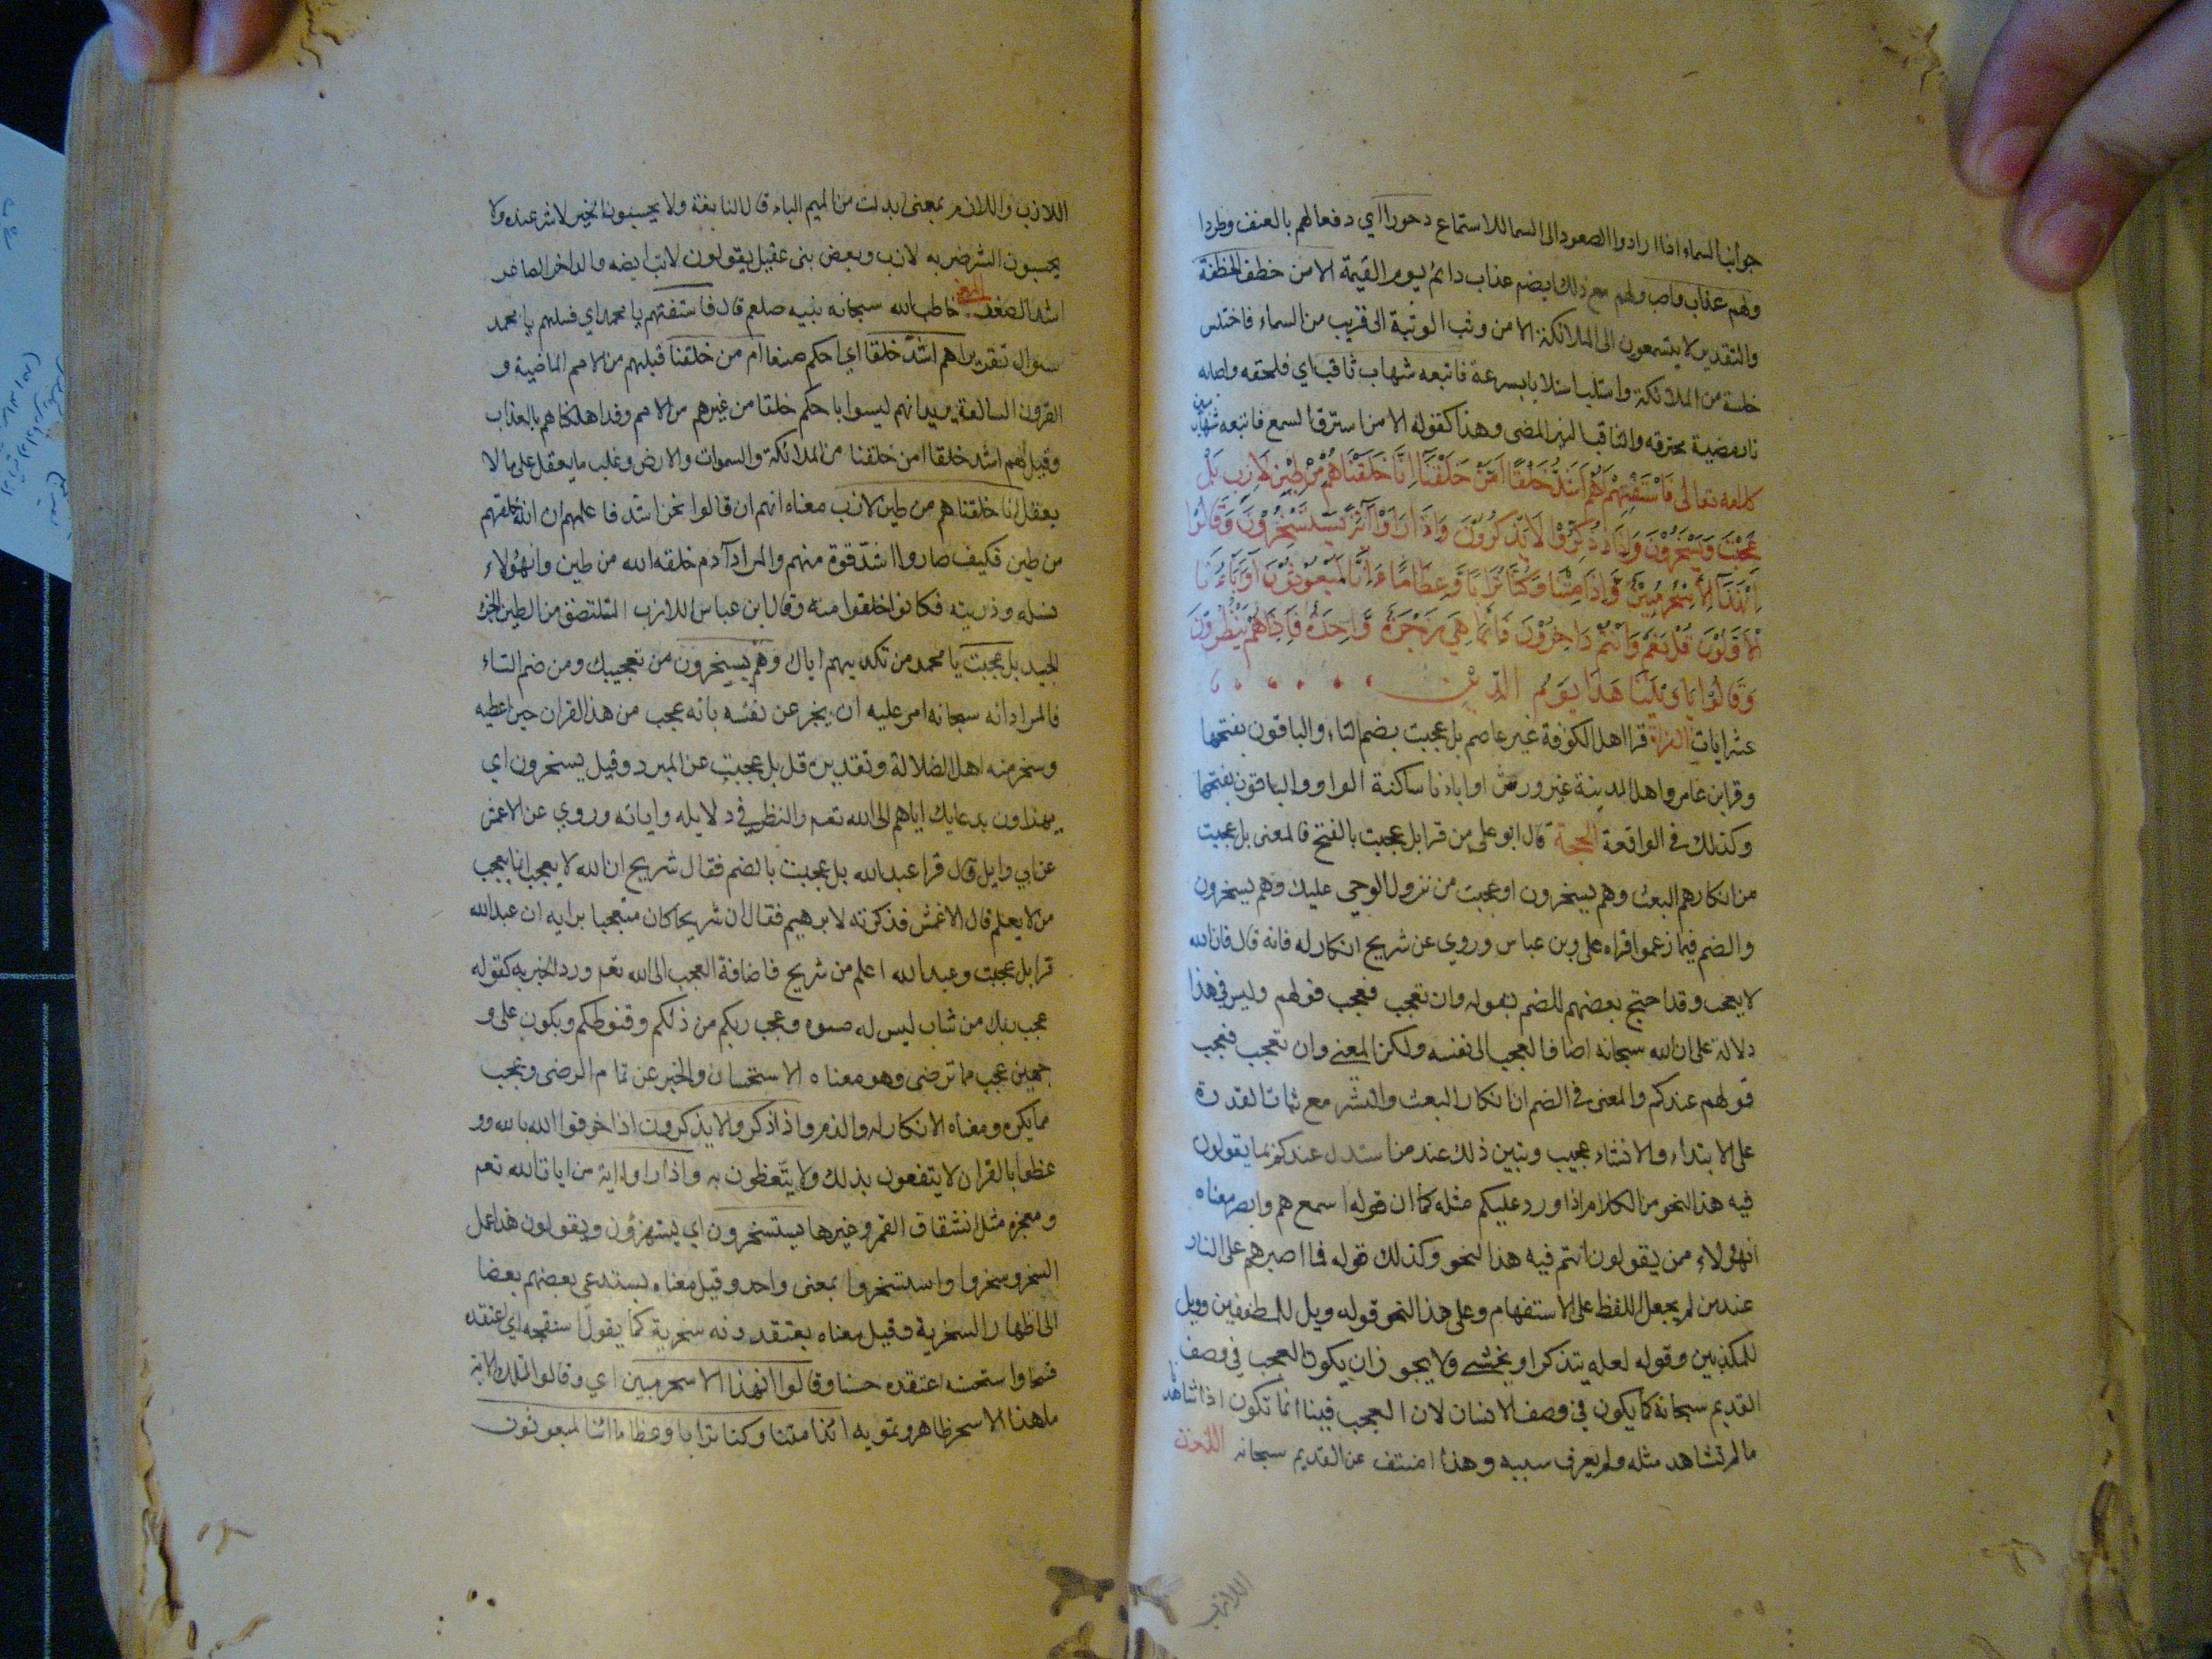 جوانب السماء اذا ارادوا الصعود الى السما للاستماع دحورا اي دفعا لهم بالعنف وطردا
ولهم عذاب واصب ولهم مع ذلك ايضم عذاب دائم يوم القيمة الا من خطف الخطفة
والتقدير لا يتسمعون الى الملائكة الا من وثب الوثبة الى قريب من السماء فاختلس
خلسة من الملائكة واستلب استلابا بسرعة فاتبعه شهاب ثاقب اي فلحقه واصابه
نار مضيئة محرقه والثاقب النير المضى وهذا كقوله الا من استرق السمع فاتبعه شهاب مبين
كلامه تعالى فَاسْتَفْتِهِمْ اَهُمْ اَشَدُّ خَلْقًا اَمْ مَنْ خَلَقْنَا اِنَّا خَلَقْنَاهُمْ مِنْ طِينٍ لَازِبٍ بَلْ
عَجِبْتَ وَيَسْخَرُونَ وَاِذَا ذُكِّرُوا لَا يَذْكُرُونَ وَاِذَا رَاَوْا آيَةً يَسْتَسْخِرُونَ وَقَالُوا
اِنْ هَذَا اِلَّا سِحْرٌ مُبِينٌ ءَاِذَا مِتْنَا وَكُنَّا تُرَابًا وَعِظَامًا ءَاِنَّا لَمَبْعُوثُونَ اَوَآبَاؤُنَا
الْاَوَّلُونَ قُلْ نَعَمْ وَاَنْتُمْ دَاخِرُونَ فَاِنَّمَا هِيَ زَجْرَةٌ وَاحِدَةٌ فَاِذَا هُمْ يَنْظُرُونَ
وَقَالُوا يَا وَيْلَنَا هَذَا يَوْمُ الدِّينِ
عشر ايات القراة قرا اهل الكوفة غير عاصم بل عجبت بضم التاء والباقون بفتحها
وقرا ابن عامر واهل المدينة غير ورش او اباءنا ساكنة الواو والباقون بفتحها
وكذلك في الواقعة الحجة قال ابو علي من قرا بل عجبت بالفتح فالمعنى بل عجبت
من انكارهم البعث وهم يسخرون او عجبت من نزول الوحي عليك وهم يسخرون
والضم فيما زعموا قراه علي وبن عباس وروي عن شريح انكار له فانه قال فان الله
لا يعجب وقد احتج بعضهم للضم بقوله وان تعجب فعجب قولهم وليس في هذا
دلالة على ان الله سبحانه اضاف العجب الى نفسه ولكن المعنى وان تعجب فعجب
قولهم عندكم والمعنى في الضم ان انكار البعث والنشر مع ثبات القدرة
على الابتداء والانشاء عجيب وتبين ذلك عند من استدل عندكم بما يقولون
فيه هذا النحو من الكلام اذا ورد عليكم مثله كما ان قوله اسمع هم وابصر معناه
ان هؤلاء ممن يقولون انتم فيه هذا النحو وكذلك قوله فما اصبرهم على النار
عند من لم يجعل اللفظ على الاستفهام وعلى هذا النحو قوله ويل للمطففين وويل
للمكذبين وقوله لعله يتذكر او يخشى ولا يجوز ان يكون العجب في وصف
القديم سبحانه كما يكون في وصف الانسان لان العجب فينا انما تكون اذا شاهدنا
ما لم نشاهد مثله ولم يعرف سببه وهذا منتف عن القديم سبحانه اللغة
اللازب
اللازب واللازم بمعنى ابدلت من الميم الباء قال النابغة ولا يحسبون الخير لا شر عنده ولا
يحسبون الشر ضربه لازب وبعض بني عقيل يقولون لاتب ايضه والداخر الصاغر
اشد الصغر المعنى خاطب الله سبحانه نبيه صلعم قال فاستفتهم يا محمد اي فسلهم يا محمد
سوال تقدير اهم اشد خلقا اي احكم صنعا ام من خلقنا قبلهم من الامم الماضية و
القرون السالفة يريد انهم ليسوا باحكم خلقا من غيرهم من الامم وقد اهلكناهم بالعذاب
وقيل اهم اشد خلقا امن خلقنا من الملائكة والسموات والارض وغلب ما يعقل على ما لا
يعقل انا خلقناهم من طين لازب معناه انهم ان قالوا نحن اشد فاعلمهم ان الله خلقهم
من طين فكيف صاروا اشد قوة منهم والمراد آدم خلقه الله من طين وان هؤلاء
نسله وذريته فكانوا خلقوا منه وقال ابن عباس اللازب المتلتصق من الطين الحر
الجيد بل عجبت يا محمد من تكذيبهم اياك وهم يسخرون من تعجيبك ومن ضم التاء
فالمراد انه سبحانه امر عليه ان يخبر عن نفسه بانه عجب من هذا القران حين اعطيه
وسخر منه اهل الضلالة وتقديره قل بل عجبت عن المبرد وقيل يسخرون اي
يهزاون بدعايك اياهم الى الله تعم والنظر في دلايله واياته وروي عن الاعمش
عن ابي وايل قال قرا عبدالله بل عجبت بالضم فقال شريح ان الله لا يعجب انما يعجب
من لا يعلم قال الاعمش فذكرته لابرهيم فقال ان شريحا كان معجبا برايه ان عبد الله
قرا بل عجبت وعبد الله اعلم من شريح فاضافة العجب الى الله تعم ورد الخبر به كقوله
عجب ربك من شاب ليس له صبوه وعجب ربكم من ذلكم وقنوطكم ويكون على و
جهين عجب مما ترضى وهو معناه الاستحسان والخبر عن تمام الرضى وعجب
مما يكره ومعناه الانكار له والذم واذا ذكروا لا يذكرون اذا خوفوا الله بالله وو
عظوا بالقران لا ينتفعون بذلك ولا يتعظون به واذا راوا اية من ايات الله تعم
ومعجزه مثل انشقاق القمر وغيرها يستسخرون اي يستهزؤن ويقولون هذا عمل
السحر وسخروا واستسخروا بمعنى واحد وقيل معناه يستدعي بعضهم بعضا
الى اظهار السخرية وقيل معناه يعتقدونه سخرية كما يقول استقبحه اي اعتقده
قبيحا واستحسنه اعتقده حسنا وقالوا ان هذا الا سحر مبين اي وقالوا لتلك الاية
ما هذا الا سحر ظاهر وتمويه ائذا متنا وكنا ترابا وعظاما ائنا لمبعوثون